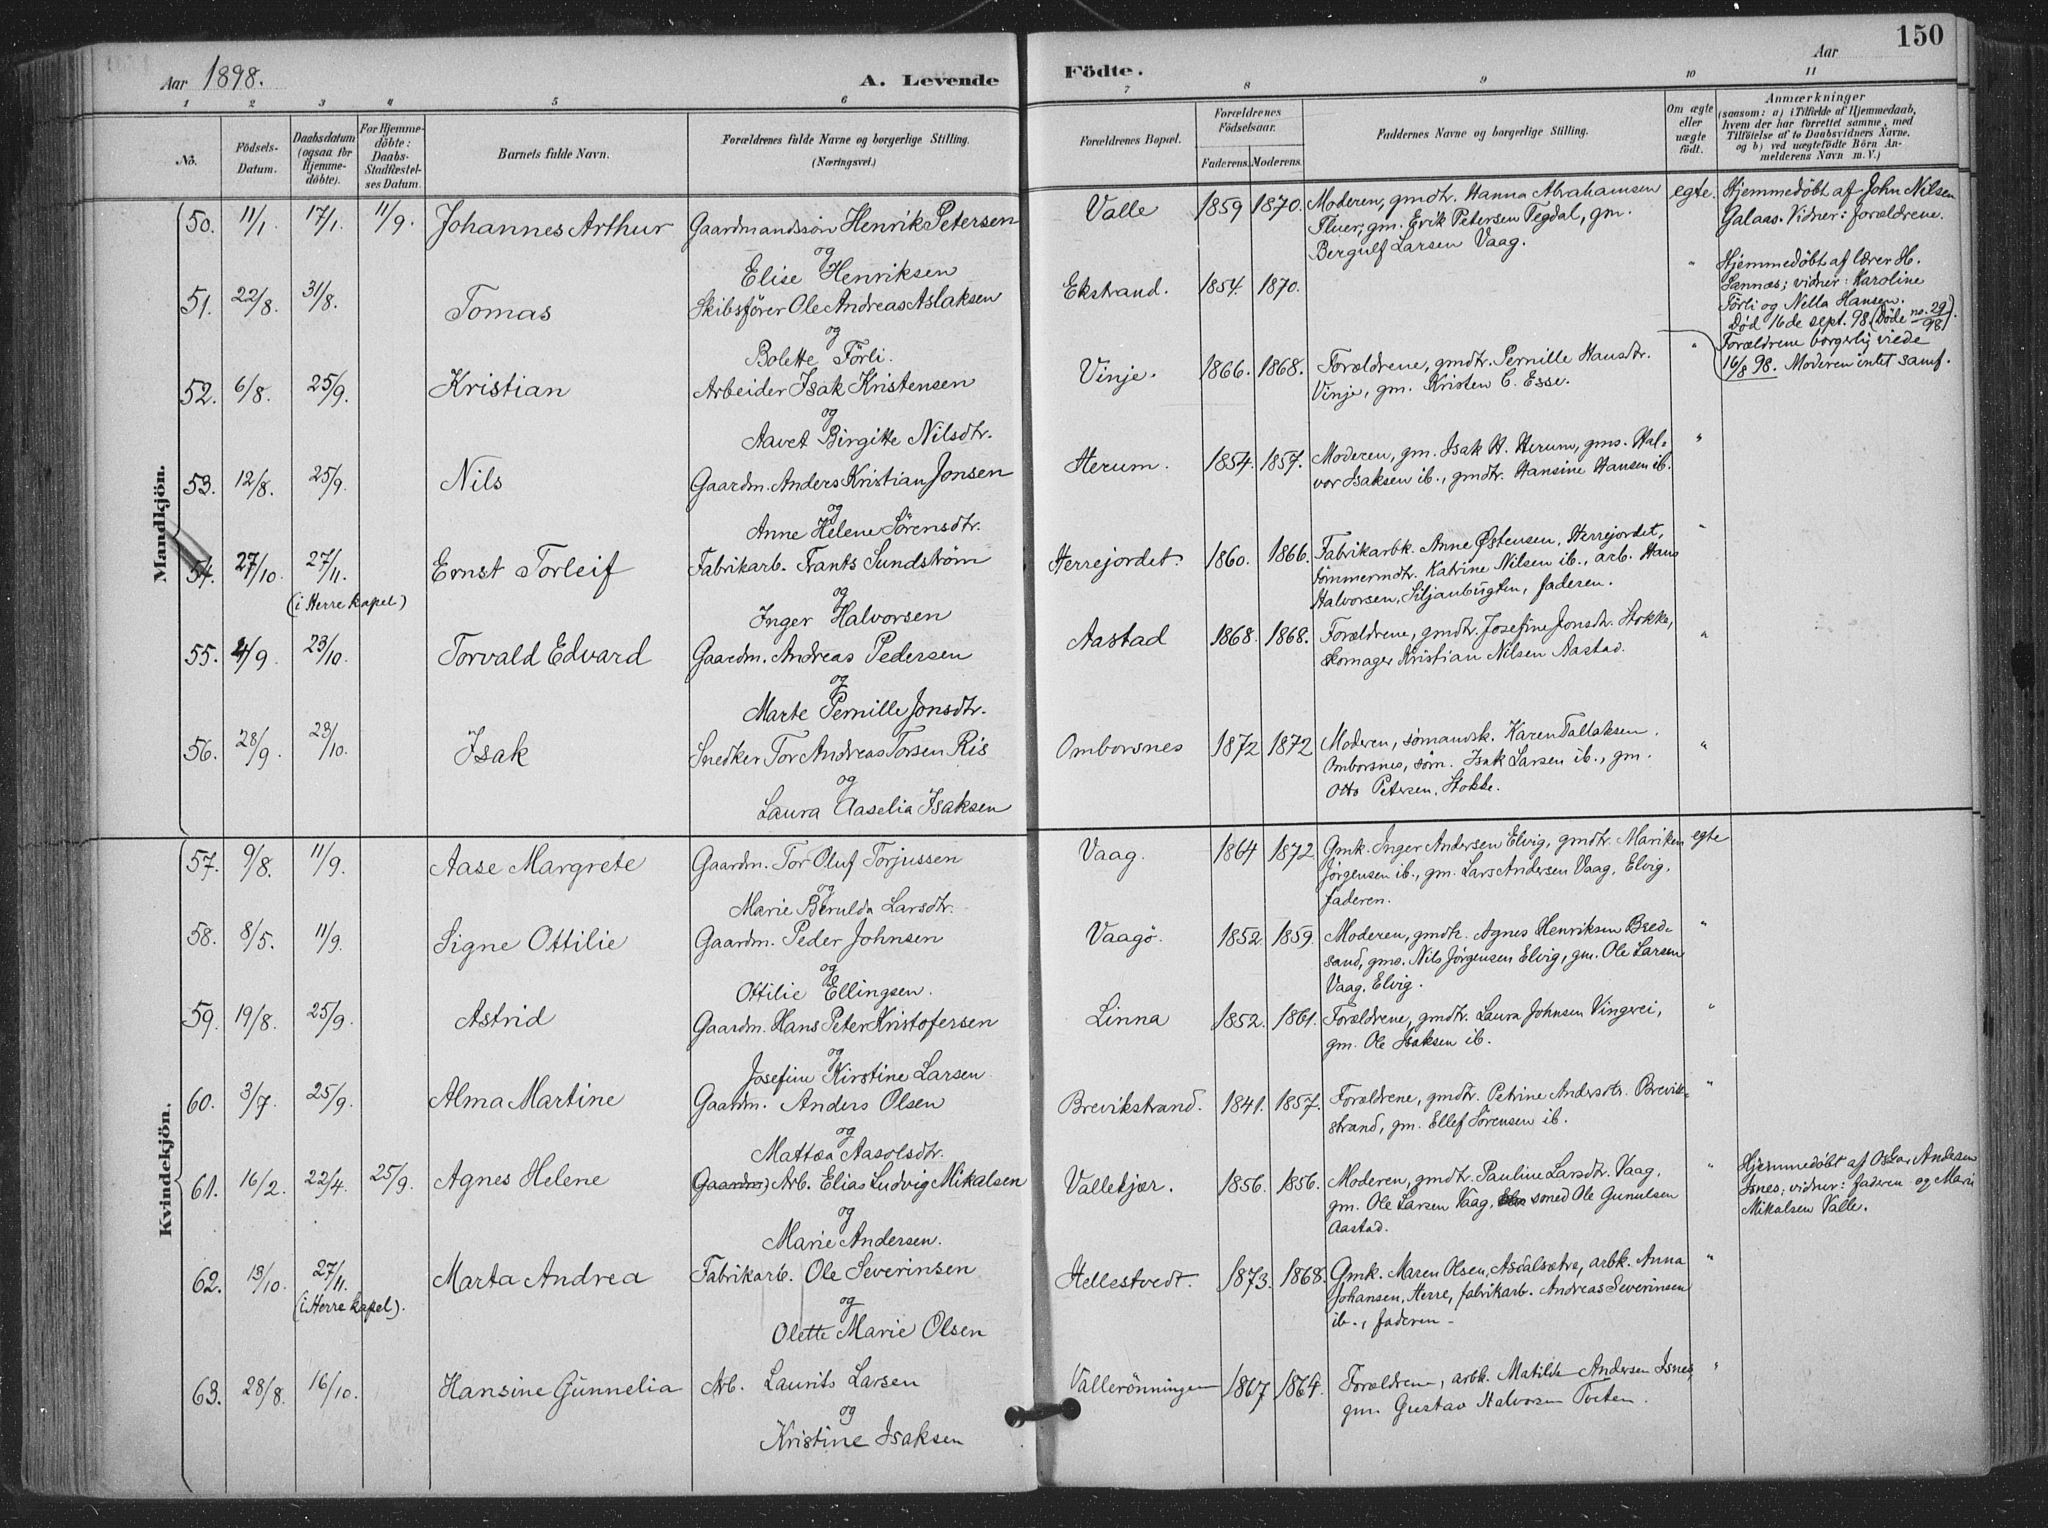 150
Aar 1898. A. Levende Födte. Aar
1 2 3 4 5 6 7 8 9 10 11
No. Födsels-Datum. Daabsdatum (ogsaa for Hjemmedöbte). For Hjemmedöbte: Daabs-Stadfæstelses Datum. Barnets fulde Navn. Forældrenes fulde Navne og borgerlige Stilling. (Næringsvei.) Forældrenes Bopæl. Forældrenes Födselsaar. Faderens. Moderens. Faddernes Navne og borgerlige Stilling. Om ægte eller uægte födt. Anmærkninger (saasom: a) i Tilfælde af Hjemmedaab, hvem der har forrettet samme, med Tilföielse af to Daabsvidners Navne, og b) ved uægtefödte Börn Anmelderens Navn m. V.)
Mandkjön.
50. 11/1 17/1. 11/9. Johannes Arthur Gaardmandssön Henrik Petersen
og
Elise Henriksen
Valle 1859 1870. Moderen, gmdtr. Hanna Abrahamsen
Fluer, gm. Erik Petersen Tegdal, gm.
Bergulf Larsen Vaag.
egte. Hjemmedøbt af John Nilsen
Galaas. Vidner: forældrene.
51. 22/8. 31/8. Tomas Skibsfører Ole Andreas Aslaksen
og
Bolette Förli.
Ekstrand. 1854. 1870.
" Hjemmedøbt af lærer H.
Sannæs; vidner: Karoline
Förli og Nella Hansen.
Død 16de sept. 98 (Døde no. 29/98).
52. 6/8. 25/9. Kristian Arbeider Isak Kristensen
og
Aavet Birgitte Nilsdtr.
Vinje. 1866. 1868. Forældrene, gmdtr. Pernille Hansdtr.
Vinje, gm. Kristen C. Esse.
" Forældrene borgerlig viede
16/8 98. Moderen intet samf.
53. 12/8. 25/9. Nils Gaardm. Anders Kristian Jonsen
og
Anne Helene Sörensdtr.
Herum. 1854. 1857. Moderen, gm. Isak H. Herum, gms. Hal-
vor Isaksen ib., gmdtr. Hansine Hansen ib.
"
54. 27/10. 27/11. (i Herre kapel) Ernst Torleif Fabrikarb. Frants Sundström
og
Inger Halvorsen
Herrejordet. 1860. 1866. Fabrikarbk. Anne Østensen, Herrejordet,
tömmermdtr. Katrine Nilsen ib., arb. Hans
Halvorsen, Siljanbugten, faderen.
"
55. 4/9 23/10. Torvald Edvard Gaardm. Andreas Pedersen
og
Marte Pernille Jonsdtr.
Aastad 1868. 1868. Forældrene, gmdtr. Josefine Jonsdtr. Stokke,
skomager Kristian Nilsen Aastad.
"
56. 28/9. 23/10. Isak Snedker Tor Andreas Torsen Ris
og
Laura Aaselia Isaksen
Omborsnes 1872 1872 Moderen, sömandsk. Karen Tallaksen
Omborsnes, söm. Isak Larsen ib., gm.
Otto Petersen, Stokke.
"
Kvindekjön.
57. 9/8. 11/9. Aase Margrete Gaardm. Tor Oluf Torjussen
og
Marie Berulda Larsdtr.
Vaag. 1864 1872. Gmk. Inger Andersen Elvig, gmdtr. Mariken
Jørgensen ib., gm. Lars Andersen Vaag, Elvig,
faderen.
egte
58. 8/5. 11/9. Signe Ottilie Gaardm. Peder Johnsen
og
Ottilie Ellingsen.
Vaagö. 1852. 1859. Moderen, gmdtr. Agnes Henriksen Bred-
sand, gms. Nils Jørgensen Elvig, gm. Ole Larsen
Vaag, Elvig.
"
59. 19/8. 25/9. Astrid Gaardm. Hans Peter Kristofersen
og
Josefine Kirstine Larsen.
Linna 1852. 1861. Forældrene, gmdtr. Laura Johnsen Vingrei,
gm. Ole Isaksen ib.
"
60. 3/7. 25/9. Alma Martine Gaardm. Anders Olsen
og
Mattea Aasolsdtr.
Brevikstrand. 1841. 1857. Forældrene, gmdtr. Petrine Andersdtr. Brevik-
strand, gm. Ellef Sörensen ib.
"
61. 16/2. 22/4. 25/9. Agnes Helene Gaardm. Arb. Elias Ludvig Mikalsen
og
Marie Andersen.
Vallekjær. 1856. 1856. Moderen, gmdtr. Pauline Larsdtr. Vaag,
gm. Ole Larsen Vaag, smed Ole Gunulsen
Aastad.
" Hjemmedöbt af Oskar Andersen
Isnes; vidner: faderen og Marie
Mikalsen Valle.
62. 13/10. 27/11. (i Herre kapel). Marta Andrea Fabrikarb. Ole Severinsen
og
Olette Marie Olsen
Hellestvedt. 1873. 1868. Gmk. Maren Olsen, Asdalsætra, arbk. Anna
Johansen, Herre, fabrikarb. Andreas Severinsen
ib., faderen.
"
63. 28/8. 16/10. Hansine Gunnelia Arb. Laurits Larsen
og
Kristine Isaksen
Vallerönningen 1867 1864. Forældrene, arbk. Matilde Andersen Isnes,
gm. Gustav Halvorsen Tveten.
"